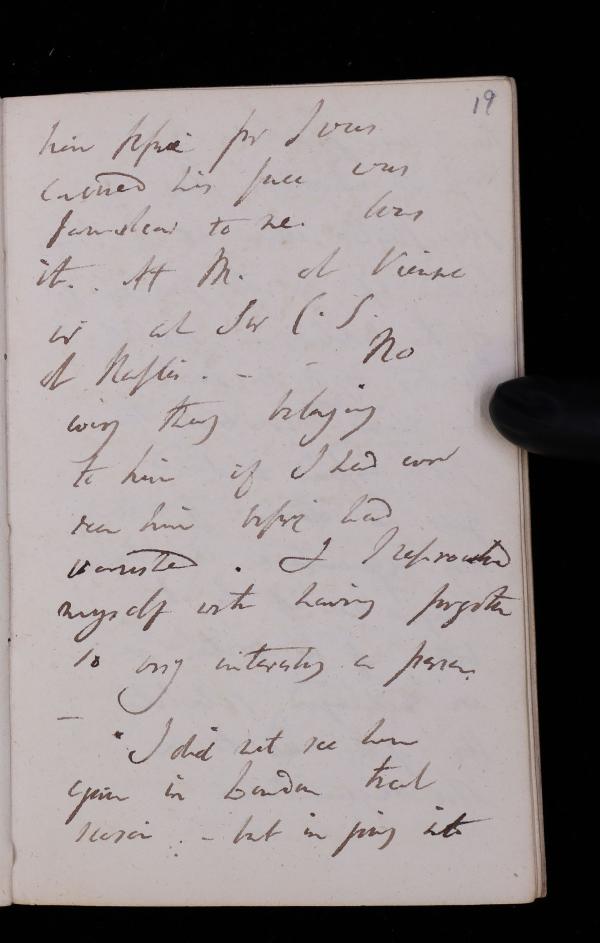 19
him before for I was
convinced his face was
familiar to me. Was
it. At M. at Vienna
or at Sir C. S.
at Naples. - - No
every thing belonging
to him if I had ever
seen him before had
vanished. I reproached
myself with having forgotten
so very interesting a person.
—
I did not see him
again in London that
season. - but in going into